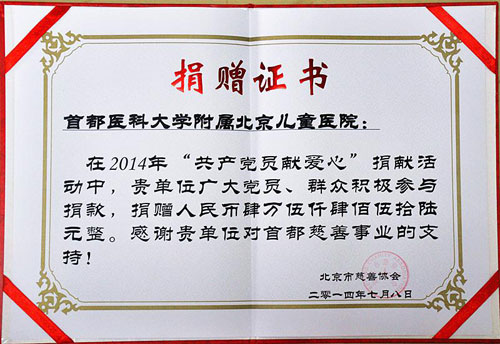 捐赠证书
首都医科大学附属北京儿童医院：
在2014年“共产党员献爱心”捐献活
动中，贵单位广大党员、群众积极参与
捐款，捐赠人民币肆万伍仟肆佰伍拾陆
元整。感谢贵单位对首都慈善事业的支
持！
北京市慈善协会
二零一四年七月八日